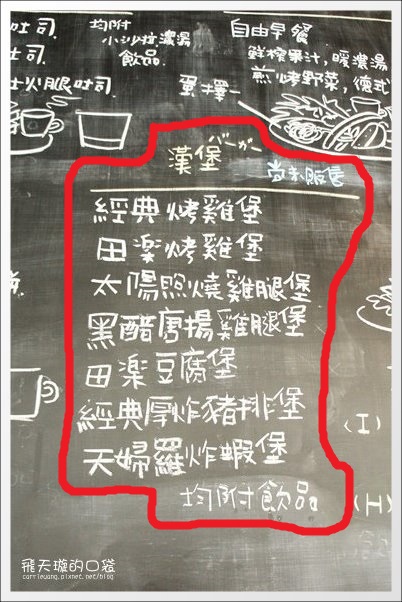 吐司
均附
小沙拉濃湯
飲品
司
士火腿吐司
蛋擇一
自由早餐
鮮榨果汁,暖濃湯
煎烤野菜,德式
漢堡バーガー
尚未販售
經典烤雞堡
田楽烤雞堡
太陽照燒雞腿堡
黑醋唐揚雞腿堡
田楽豆腐堡
經典厚炸豬排堡
天婦羅炸蝦堡
均附飲品。
(I)
(H)
飛天璇的口袋
carrieuang.pixnet.net/blog